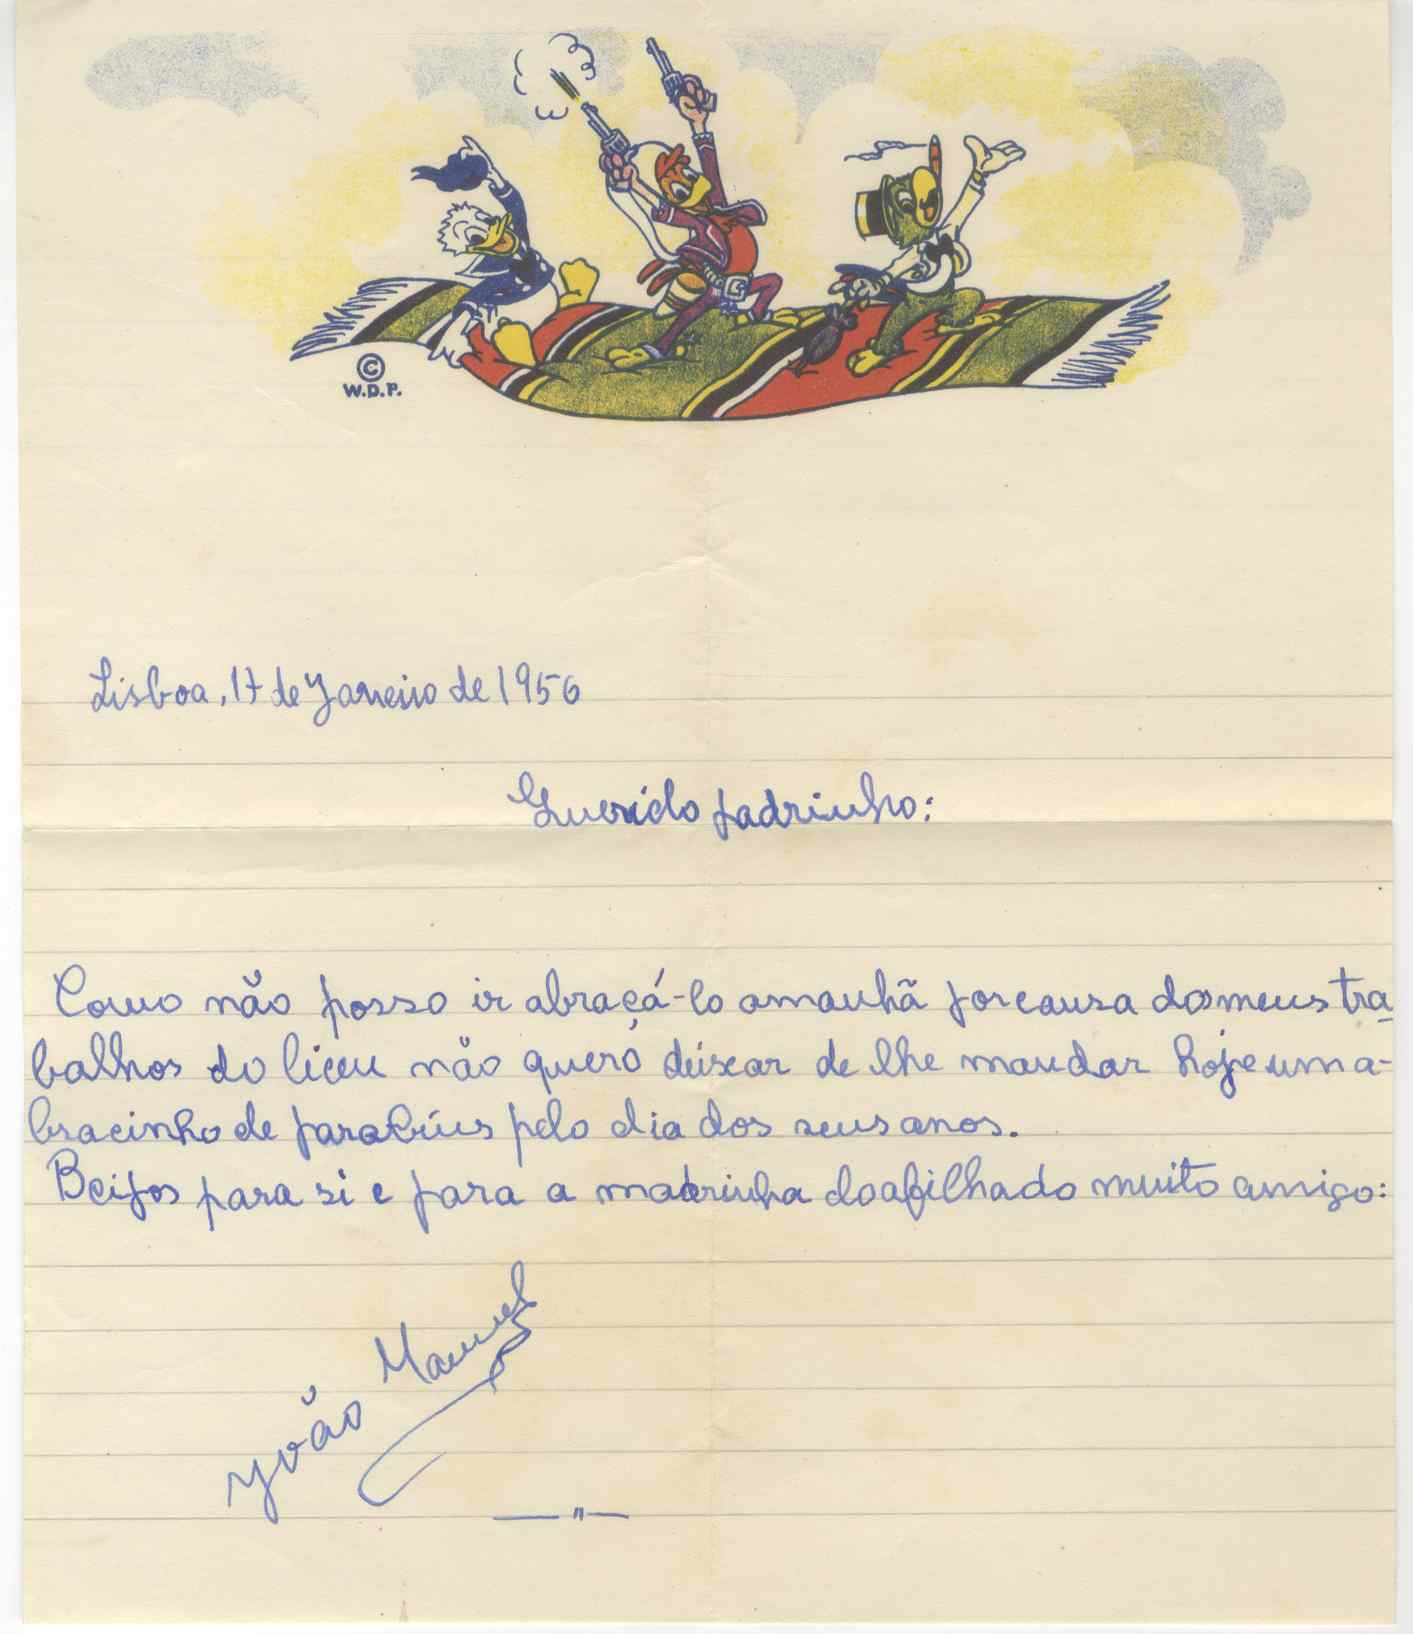 © W.D.P.
Lisboa, 17 de Janeiro de 1956
Querido padrinho:
Como não posso ir abraçá-lo amanhã por causa dos meus tra-
balhos do liceu não quero deixar de lhe mandar hoje um a-
bracinho de parabéns pelo dia dos seus anos.
Beijos para si e para a madrinha do afilhado muito amigo:
João Manuel